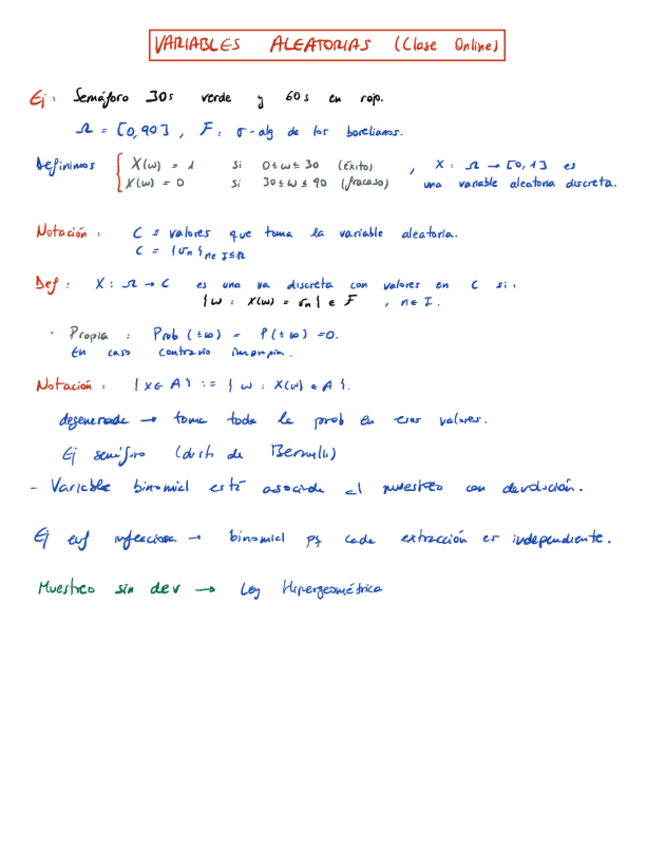 VARIABLES ALEATORIAS (Clase Online)
Ej: Semáforo 30s verde y 60s en rojo.
Ω = [0,90], F: σ-alg de los borelianos.
Definimos { X(ω) = 1 si 0≤ω≤30 (Éxito), X: Ω → [0,1] es
X(ω) = 0 si 30≤ω≤90 (fracaso) una variable aleatoria discreta.
Notación: C = valores que toma la variable aleatoria.
C = {σn}n∈I⊆ℝ
Def: X: Ω → C es una va discreta con valores en C si:
{ω: X(ω) = σn} ∈ F, n∈I.
· Propia: Prob (±∞) = P(±∞) = 0.
En caso contrario impropia.
Notación: {X∈A} := {ω: X(ω)∈A}.
degenerada → toma toda la prob en esos valores.
Ej semáforo (distr de Bernulli)
- Variable binomial está asociada al muestreo con devolución.
Ej enf infecciosa → binomial pq cada extracción es independiente.
Muestreo sin dev → Ley Hipergeométrica